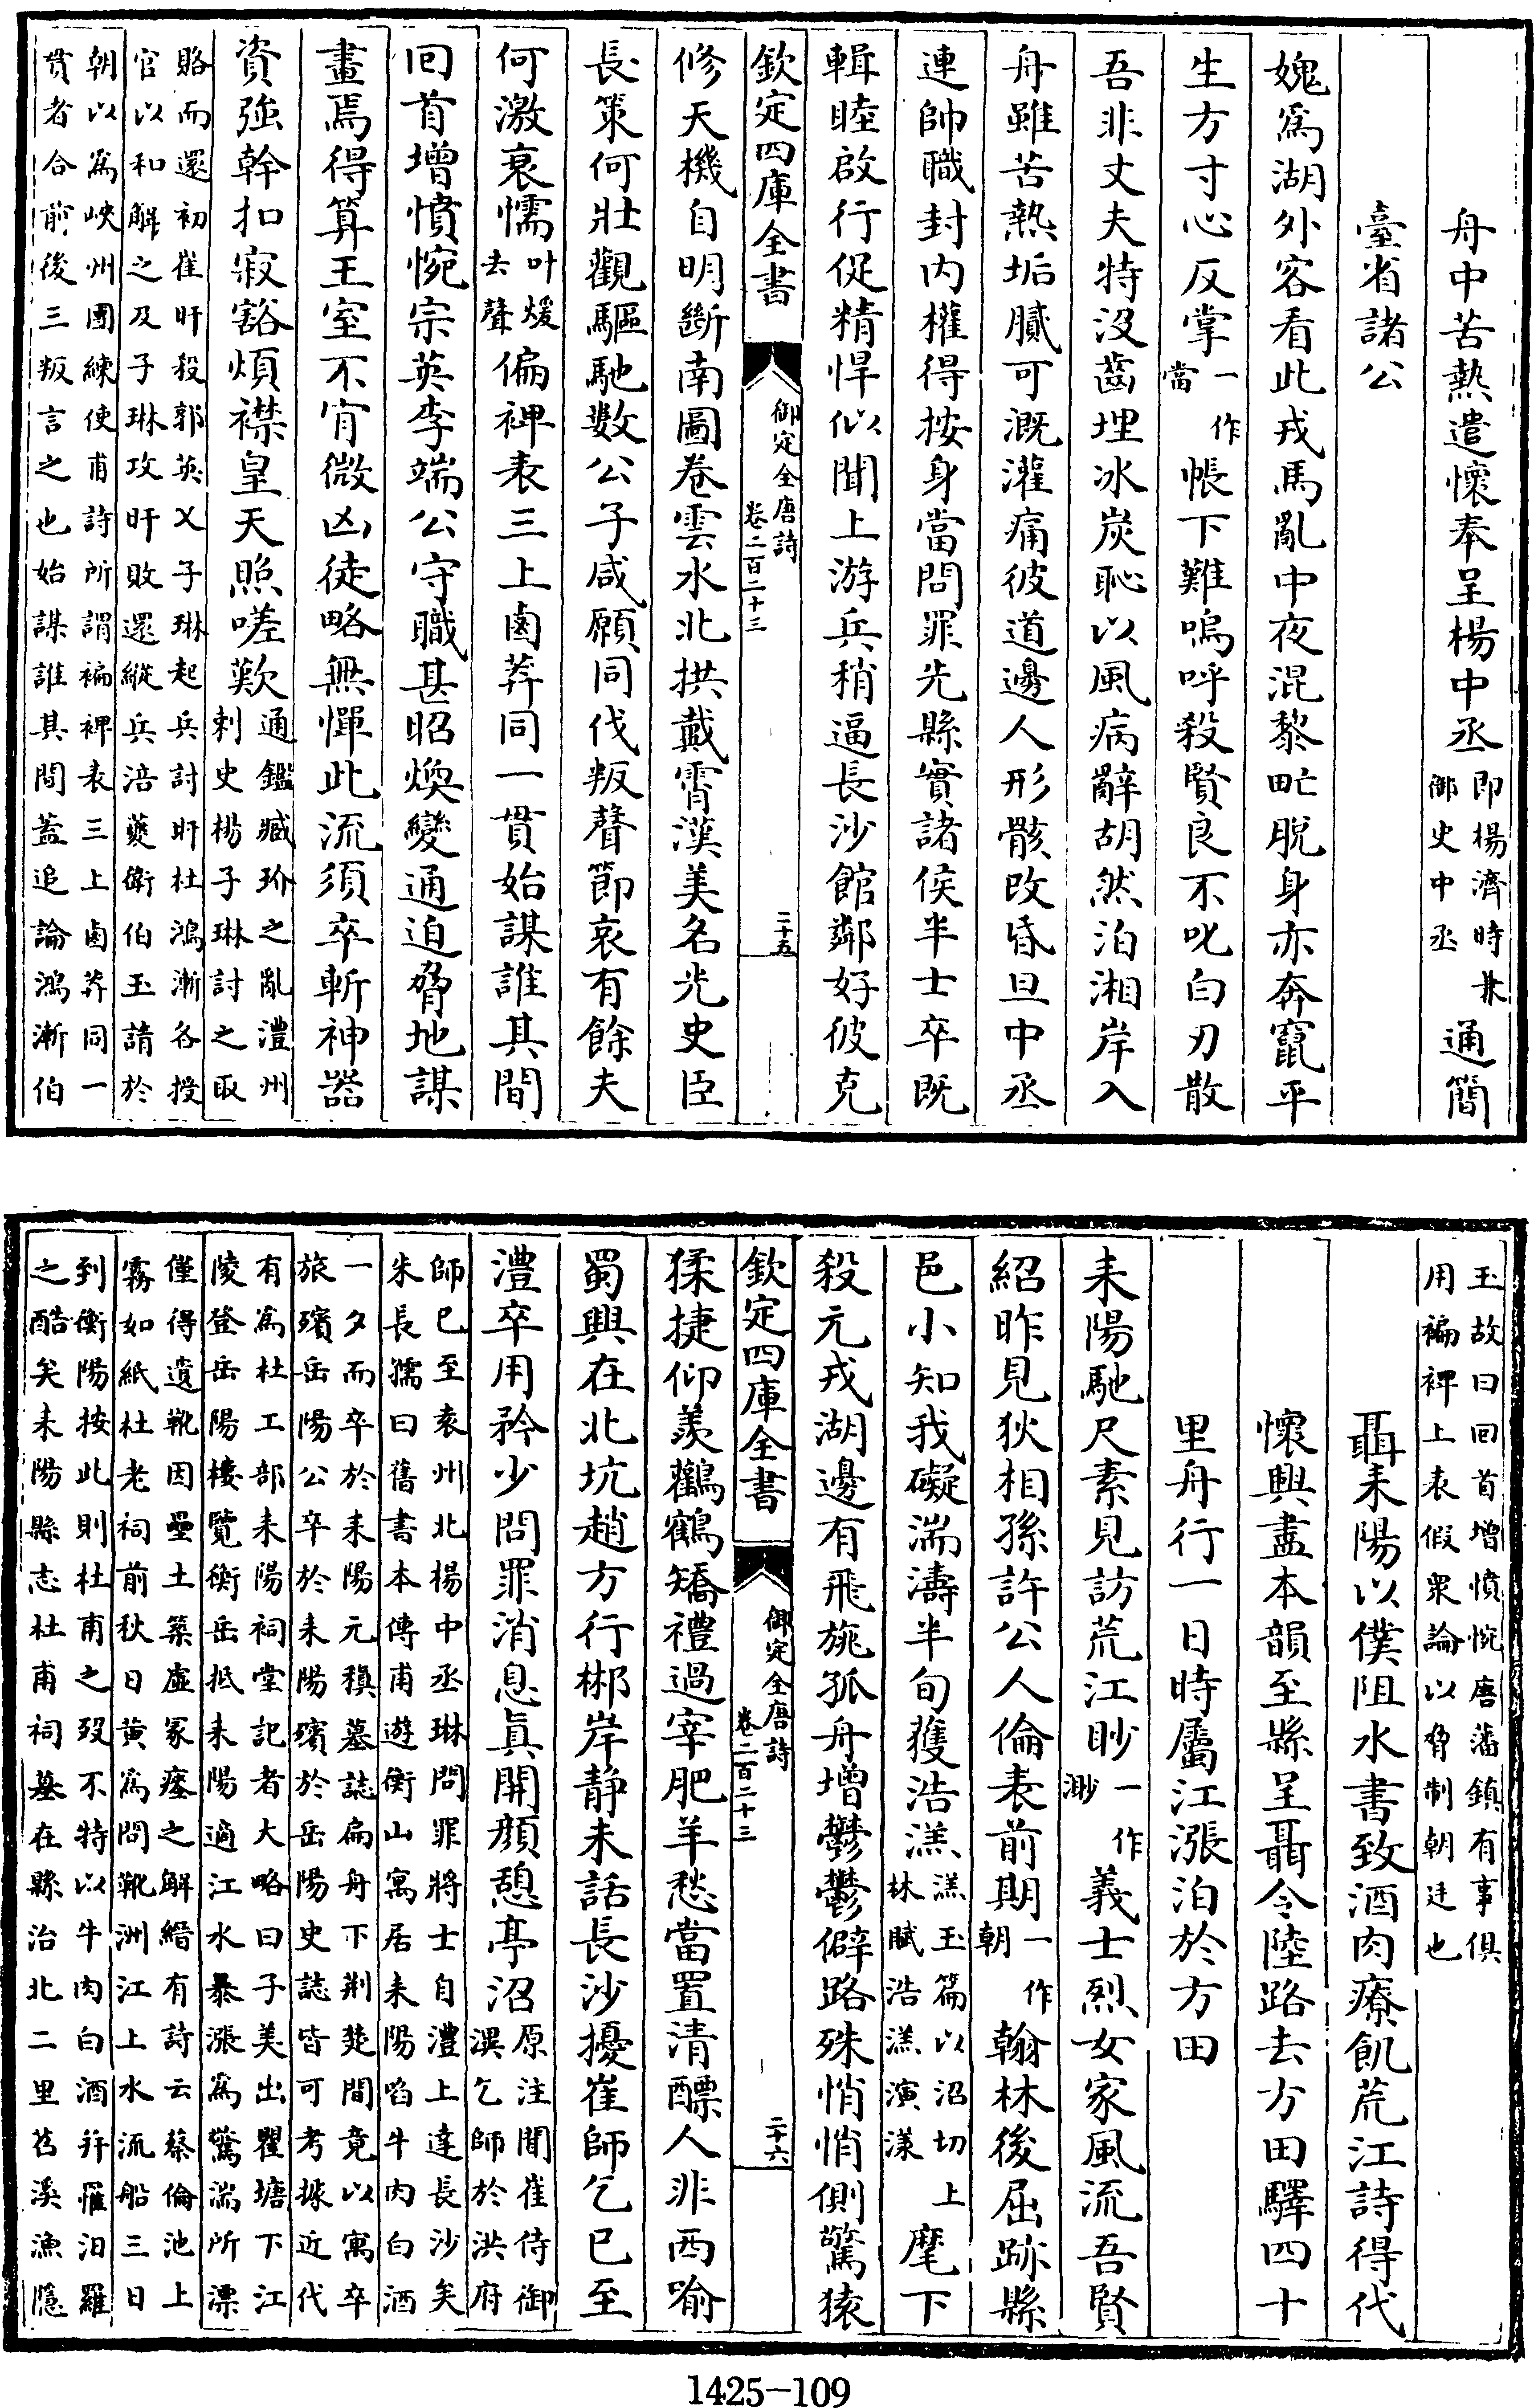 舟中苦熱遣懷奉呈楊中丞即楊濟時兼御史中丞通簡
臺省諸公
媿爲湖外客看此戎馬亂中夜混黎甿脫身亦奔竄平
生方寸心反掌一作當帳下難嗚呼殺賢良不叱白刃散
吾非丈夫特沒齒埋冰炭恥以風病辭胡然泊湘岸入
舟雖苦熱垢膩可溉灌痛彼道邊人形骸改昏旦中丞
連帥職封內權得按身當問罪先縣實諸侯半士卒既
輯睦啟行促精悍似聞上游兵稍逼長沙館鄰好彼克
欽定四庫全書
御定全唐詩
卷二百二十三
二十五
修天機自明斷南圖卷雲水北拱戴霄漢美名光史臣
長策何壯觀驅馳數公子咸願同伐叛聲節哀有餘夫
何激衰懦叶煖去聲偏裨表三上鹵莽同一貫始謀誰其間
回首增憤惋宗英李端公守職甚昭煥變通迫脅地謀
畫焉得算王室不肯微凶徒略無憚此流須卒斬神器
資強幹扣寂豁煩襟皇天照嗟歎通鑑臧玠之亂澧州刺史楊子琳討之取
賂而還初崔旰殺郭英乂子琳起兵討旰杜鴻漸各授
官以和解之及子琳攻旰敗還縱兵涪夔衛伯玉請於
朝以爲峽州團練使甫詩所謂褊裨表三上鹵莽同一
貫者合前後三叛言之也始謀誰其間蓋追論鴻漸伯
玉故曰回首增憤惋唐藩鎮有事俱
用褊裨上表假衆論以脅制朝廷也
聶耒陽以僕阻水書致酒肉療飢荒江詩得代
懷興盡本韻至縣呈聶令陸路去方田驛四十
里舟行一日時屬江漲泊於方田
耒陽馳尺素見訪荒江眇一作渺義士烈女家風流吾賢
紹昨見狄相孫許公人倫表前期一作朝翰林後屈跡縣
邑小知我礙湍濤半旬獲浩溔溔玉篇以沼切上林賦浩溔演漾麾下
殺元戎湖邊有飛旐孤舟增鬱鬱僻路殊悄悄側驚猿
欽定四庫全書
御定全唐詩
卷二百二十三
二十六
猱捷仰羨鸛鶴矯禮過宰肥羊愁當置清醥人非西喻
蜀興在北坑趙方行郴岸靜未話長沙擾崔師乞已至
澧卒用矜少問罪消息真開顏憩亭沼原注聞崔侍御潠乞師於洪府
師已至袁州北楊中丞琳問罪將士自澧上達長沙矣
朱長孺曰舊書本傳甫遊衡山寓居耒陽啗牛肉白酒
一夕而卒於耒陽元稹墓誌扁舟下荆楚間竟以寓卒
旅殯岳陽公卒於耒陽殯於岳陽史誌皆可考據近代
有爲杜工部耒陽祠堂記者大略曰子美出瞿塘下江
陵登岳陽樓覽衡岳抵耒陽適江水暴漲爲驚湍所漂
僅得遺靴因壘土築虛冢瘞之解縉有詩云蔡倫池上
霧如紙杜老祠前秋日黃爲問靴洲江上水流船三日
到衡陽按此則杜甫之歿不特以牛肉白酒幷罹汨羅
之酷矣耒陽縣志杜甫祠墓在縣治北二里苕溪漁隱
1425-109